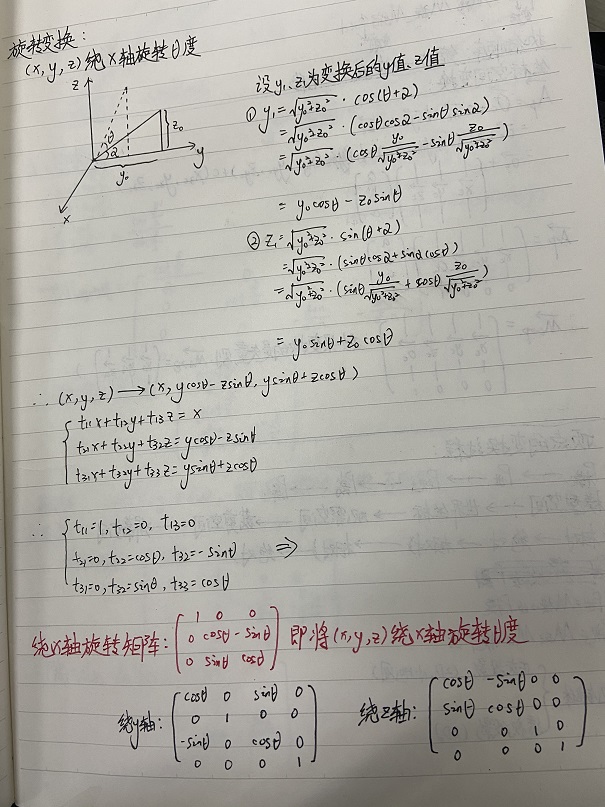 旋转变换:
(x, y, z) 绕X轴旋转θ度
z
θ
α
z₀
y
y₀
x
设y₁、z₁为变换后的y值、z值
① y₁ = √(y₀²+z₀²) · cos(θ+α)
= √(y₀²+z₀²) · (cosθcosα - sinθsinα)
= √(y₀²+z₀²) · (cosθ y₀/√(y₀²+z₀²) - sinθ z₀/√(y₀²+z₀²))
= y₀cosθ - z₀sinθ
② z₁ = √(y₀²+z₀²) · sin(θ+α)
= √(y₀²+z₀²) · (sinθcosα + sinαcosθ)
= √(y₀²+z₀²) · (sinθ y₀/√(y₀²+z₀²) + cosθ z₀/√(y₀²+z₀²))
= y₀sinθ + z₀cosθ
∴ (x, y, z) → (x, ycosθ - zsinθ, ysinθ + zcosθ)
t₁₁x + t₁₂y + t₁₃z = x
t₂₁x + t₂₂y + t₃₂z = ycosθ - zsinθ
t₃₁x + t₃₂y + t₃₃z = ysinθ + zcosθ
∴ t₁₁=1, t₁₂=0, t₁₃=0
t₂₁=0, t₂₂=cosθ, t₃₂=-sinθ ⇒
t₃₁=0, t₃₂=sinθ, t₃₃=cosθ
绕X轴旋转矩阵: 即将(x, y, z)绕X轴旋转θ度
1 0 0
0 cosθ -sinθ
0 sinθ cosθ
绕y轴:
cosθ 0 sinθ 0
0 1 0 0
-sinθ 0 cosθ 0
0 0 0 1
绕z轴:
cosθ -sinθ 0 0
sinθ cosθ 0 0
0 0 1 0
0 0 0 1